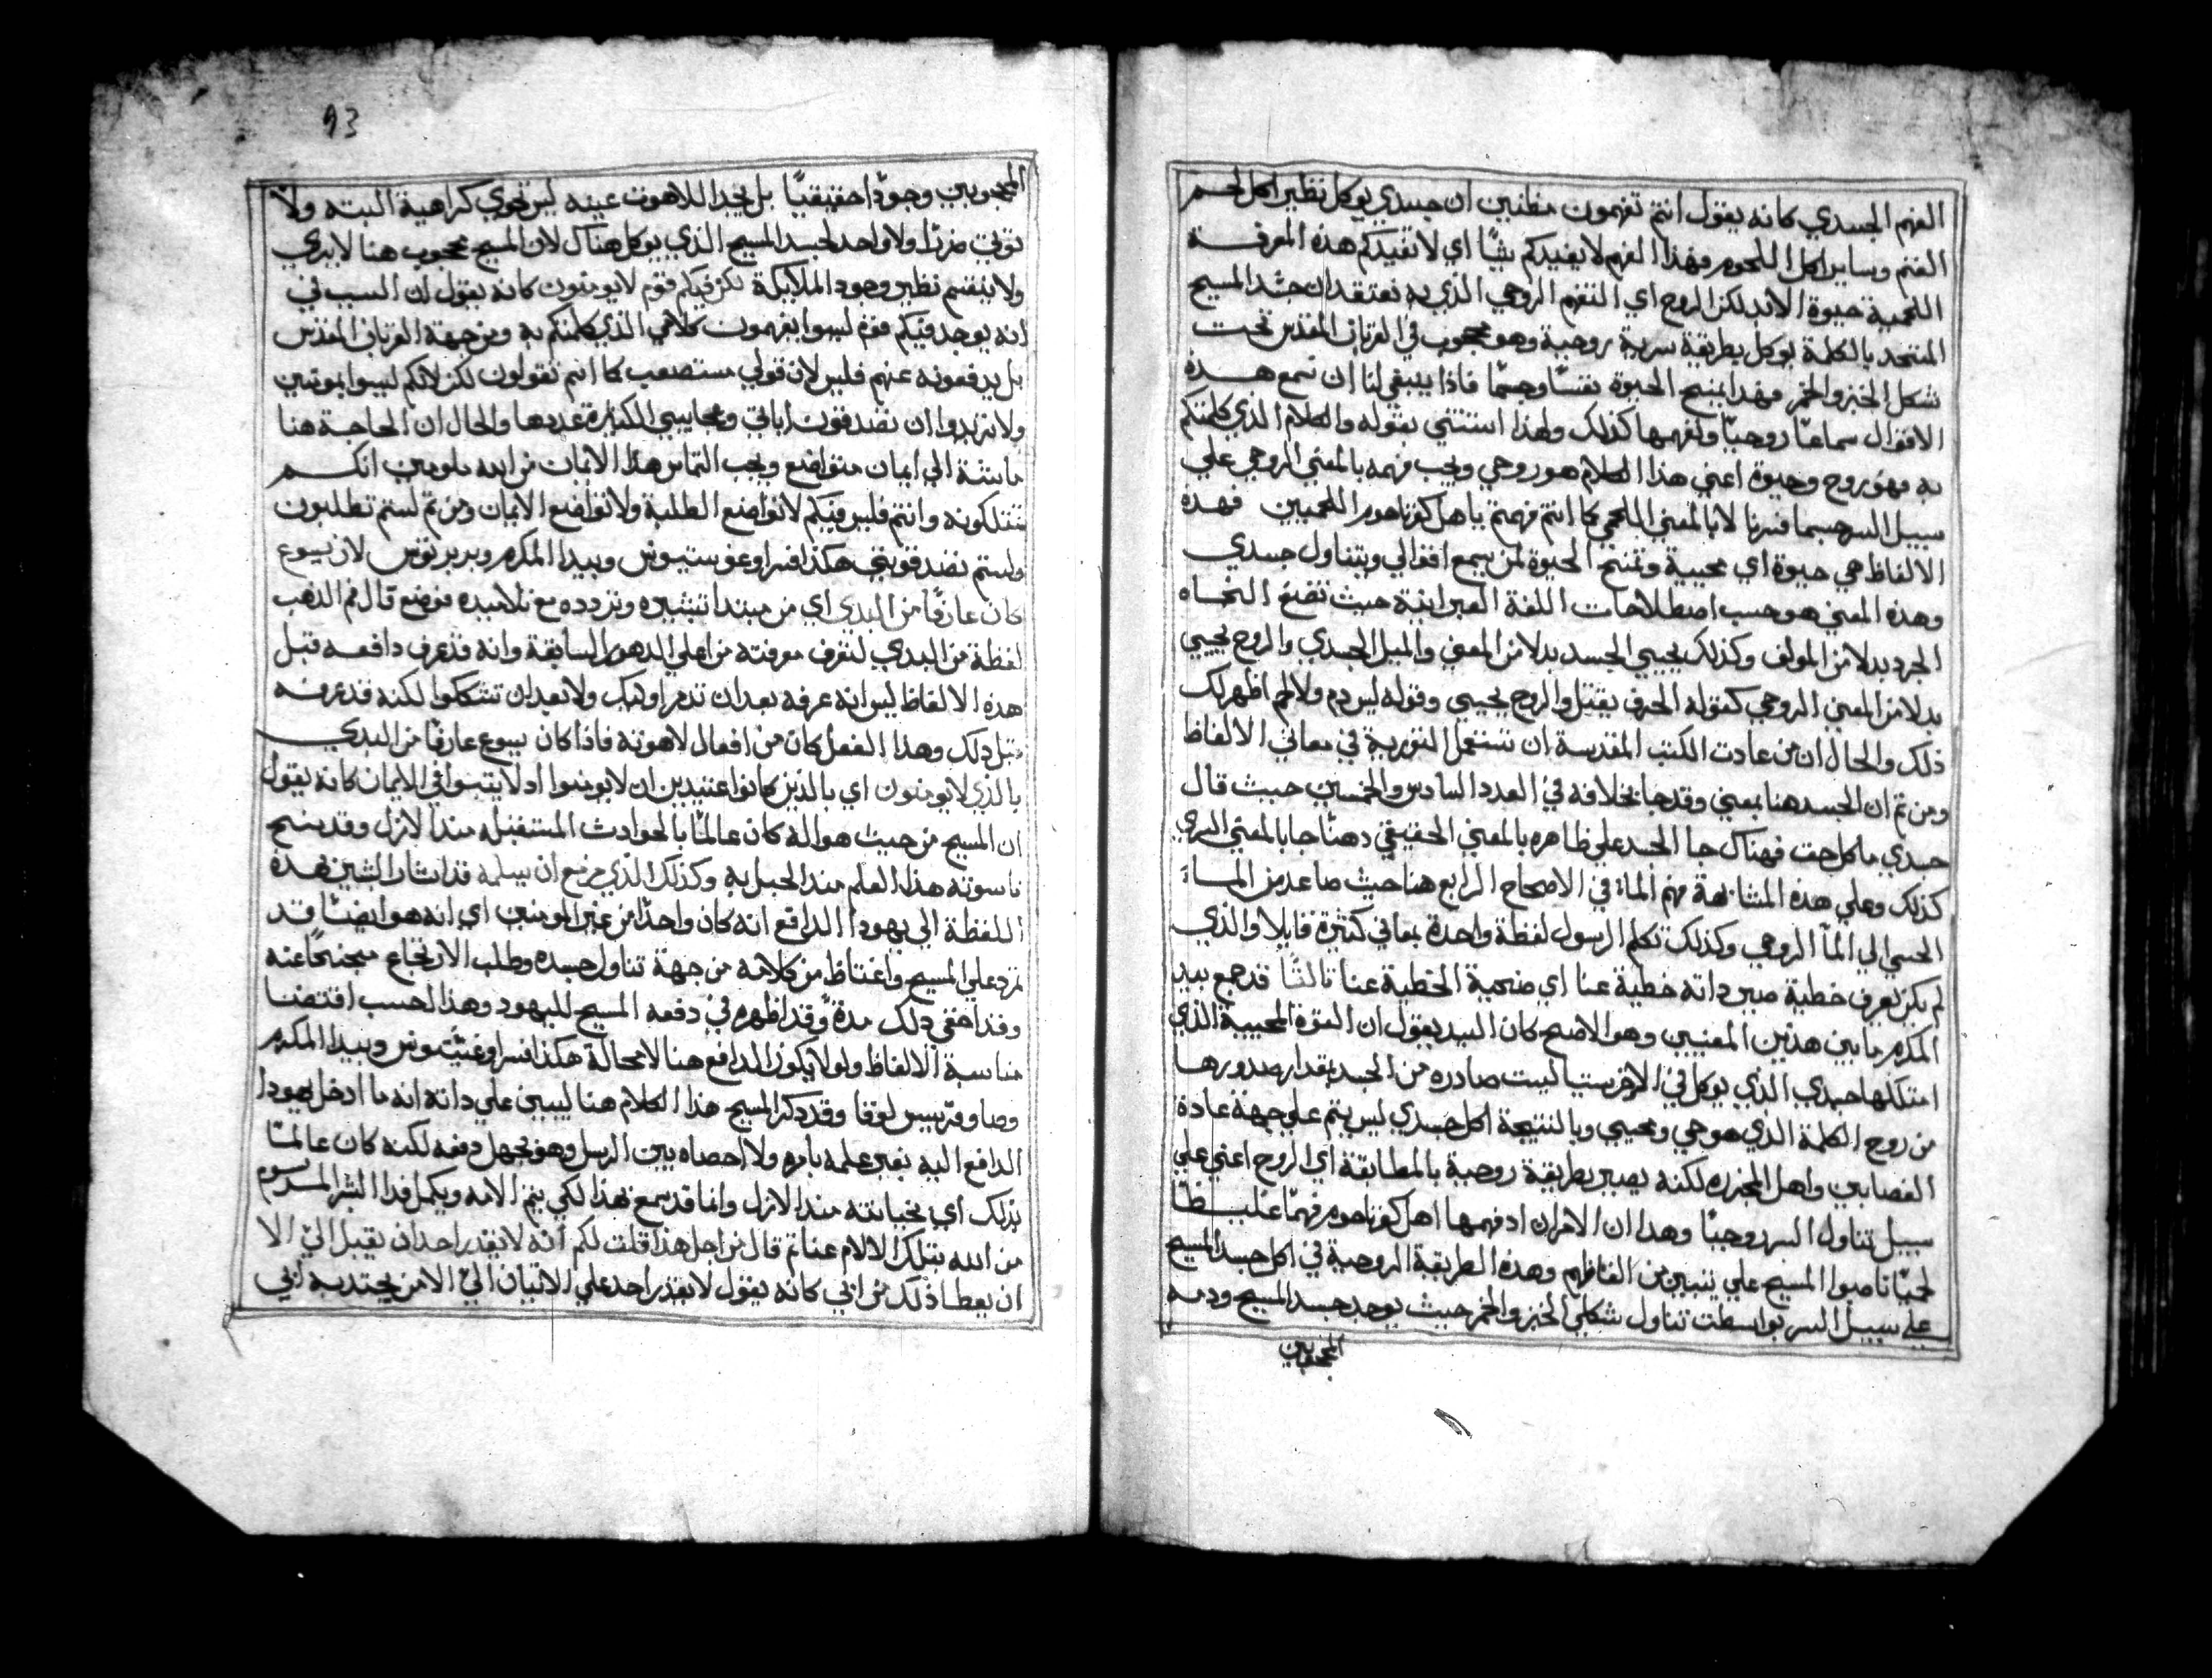 الفهم الجسدي كانه يقول انتم تفهمون مظنين ان جسدي يوكل نظير اكل لحم
الغنم وساير اكل اللحوم فهذا الفهم لا يفيدكم شيًا اي لا تفيدكم هذه المعرفة
اللحمية حيوة الابد لكن الروح اي التفهم الروحي الذي به نعتقد ان جسد المسيح
المتحد بالكلمة يوكل بطريقة سرية روحية وهو محجوب في القربان المقدس تحت
شكل الخبز والخمر فهذا يمنح الحيوة نفسًا وجسمًا فاذا ينبغي لنا ان نسمع هذه
الاقوال سماعًا روحيًا ونفهمها كذلك ولهذا استثني بقوله والكلام الذي كلمتكم
به فهو روح وحيوة اعني هذا الكلام هو روحي ويجب فهمه بالمعني الروحي علي
سبيل السر حسبما فسرنا لا بالمعني اللحمي كما انتم فهمتم يا اهل كفرناحوم اللحميين فهذه
الالفاظ هي حيوة اي محيية وتمنح الحيوة لمن يسمع اقوالي ويتناول جسدي
وهذه المعني هو حسب اصطلاحات اللغة العبرانية حيث تضع النحاه
المجرد بدلا من المولف وكذلك يجيي الجسد بدلا من المعني والميل الجسدي والروح يجيي
بدلا من المعني الروحي كقوله الحرف يقتل والروح يحيي وقوله ليس دم ولا لحم اظهر لك
ذلك والحال ان من عادت الكتب المقدسة ان تستعمل التورية في معاني الالفاظ
ومن ثم ان الجسد هنا بمعني وقد جا بخلافه في العدد السادس والخمسين حيث قال
جسدي ماكل حق فهناك جا الجسد علي ظاهره بالمعني الحقيقي وهنا جا بالمعني السري
كذلك وعلي هذه المشابهة فهم الماء في الاصحاح الرابع هنا حيث صاعد من الماء
الحسي الي المآ الروحي وكذلك تكلم الرسول لفظة واحدة بمعاني كثيرة قايلا والذي
لم يكن يعرف خطية صير ذاته خطية عنا اي ضحية الخطية عنا ثالثًا قد جمع بيد
المكرم ما بين هذين المعنيين وهو الاصح كان السيد يقول ان القوة المحيية الذي
امتلكها جسدي الذي يوكل في الافخرستيا ليست صادره من الجسد بمقدار صدورها
من روح الكلمة الذي هو حي ومحيي وبالنتيجة اكل جسدي ليس يتم علي جهة عادة
القصابين واهل المجزره لكنه يصير بطريقة روحية بالمطابقة اي الروح اعني علي
سبيل تناول السر روحيًا وهذا ان الامران اذ فهمها اهل كفرناحوم فهمًا غليظًا
لحميًا ناصبوا المسيح علي يتبين من الفاظهم وهذه الطريقة الروحية في اكل جسد المسيح
علي سبيل السر بواسطت تناول شكلي الخبز والخمر حيث يوجد جسد المسيح ودمه
المحجوبين
93
المحجوبين وجودًا حقيقيًا بل يجد اللاهوت عينه ليس تحوي كراهية البته ولا
توفي ضررًا ولا واحد لجسد المسيح الذي يوكل هناك لان المسيح محجوب هنا لا يري
ولا ينقسم نظير وجود الملايكة لكن فيكم قوم لا يومنون كانه يقول ان السبب في
انه يوجد فيكم قوم ليسوا يفهمون كلامي الذي كلمتكم به ومن جهة القربان المقدس
بل يدفعونه عنهم فليس لان قولي مستصعب كما انتم تقولون لكن لانكم ليسوا بمومنين
ولا تريدوا ان تصدقون اياتي وعجايبي الكثيرة عددها والحال ان الحاجة هنا
ماسة الي ايمان متواضع ويجب التماس هذا الايمان من الله ملومين انكم
تمتلكونه وانتم فليس فيكم لا تواضع الطلبة ولا تواضع الايمان ومن ثم لستم تطلبون
ولستم تصدقونني هكذا فسر اوغوستينوس وبيدا المكرم وبربريوس لان يسوع
كان عارفًا من البدي اي من مبتدا تبشيره وتردده مع تلاميذه فوضع قال فم الذهب
لفظة من البدي لتعرف معرفته من اعلي الدهور السابقة وانه قد عرف دافعه قبل
هذه الالفاظ ليس انه عرفه بعد ان تذمر اوليك ولا بعد ان تشككوا لكنه قد عرفه
قبل ذلك وهذا الفعل كان من افعال لاهوته فاذا كان يسوع عارفًا من البدي
بالذي لا يومنون اي بالذين كانوا عتيدين ان لا يومنوا او لا يثبتوا في الايمان كانه يقول
ان المسيح من حيث هو اله كان عالمًا بالحوادث المستقبله منذ الازل وقد منح
ناسوته هذا العلم منذ الحبل به وكذلك الذي مزمع ان يسلمه قد اشار البشير بهذه
اللفظة الي يهوذا الدافع انه كان واحدًا من غير المومنين اي انه هو ايضًا قد
تمرد علي المسيح واغتاظ من كلامه من جهة تناول جسده وطلب الارتجاع مجنحًا عنه
وقد اخفي ذلك مدة وقد اظهره في دفعه المسيح لليهود وهذا لحسب اقتضا
مناسبة الالفاظ ولولا يكون الدافع هنا لا محالة هكذا فسر اوغستينوس وبيدا المكرم
وصاوفريسس لوقا وقد ذكر المسيح هذا الكلام هنا ليبين علي ذاته انه ما ادخل يهوذا
الدافع اليه بغير علمه بامره ولا احصاه بين الرسل وهو يجهل دفعه لكنه كان عالمًا
بذلك اي بخيانته منذ الازل وانما قد سمح بهذا لكي يتم الامه ويكمل فدا البشر المرسوم
من الله بتلك الالام عنا ثم قال من اجل هذا قلت لكم انه لا يقدر احد ان يقبل الي الا
ان يعطا ذلك من ابي كانه يقول لا يقدر احد علي الاتيان الي الا من يجتذبه ابي